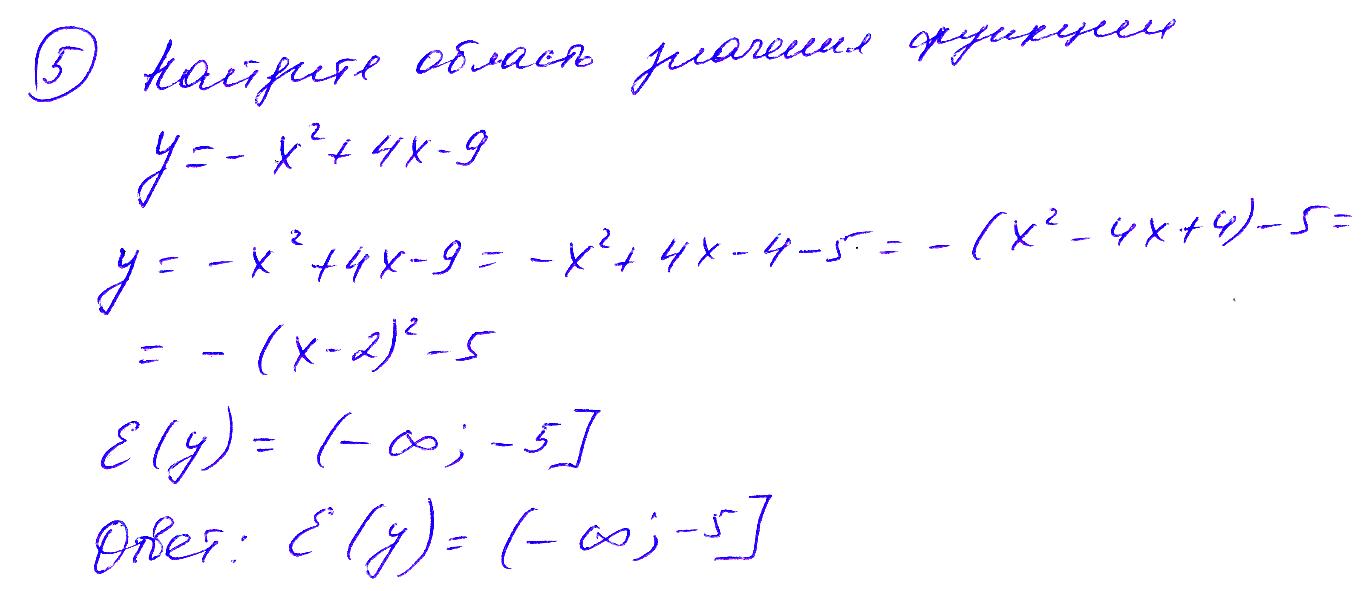 5 Найдите область значения функции
y = - x² + 4x - 9
y = -x² + 4x - 9 = -x² + 4x - 4 - 5 = - (x² - 4x + 4) - 5 =
= - (x - 2)² - 5
E(y) = (-∞; -5]
Ответ: E(y) = (-∞; -5]